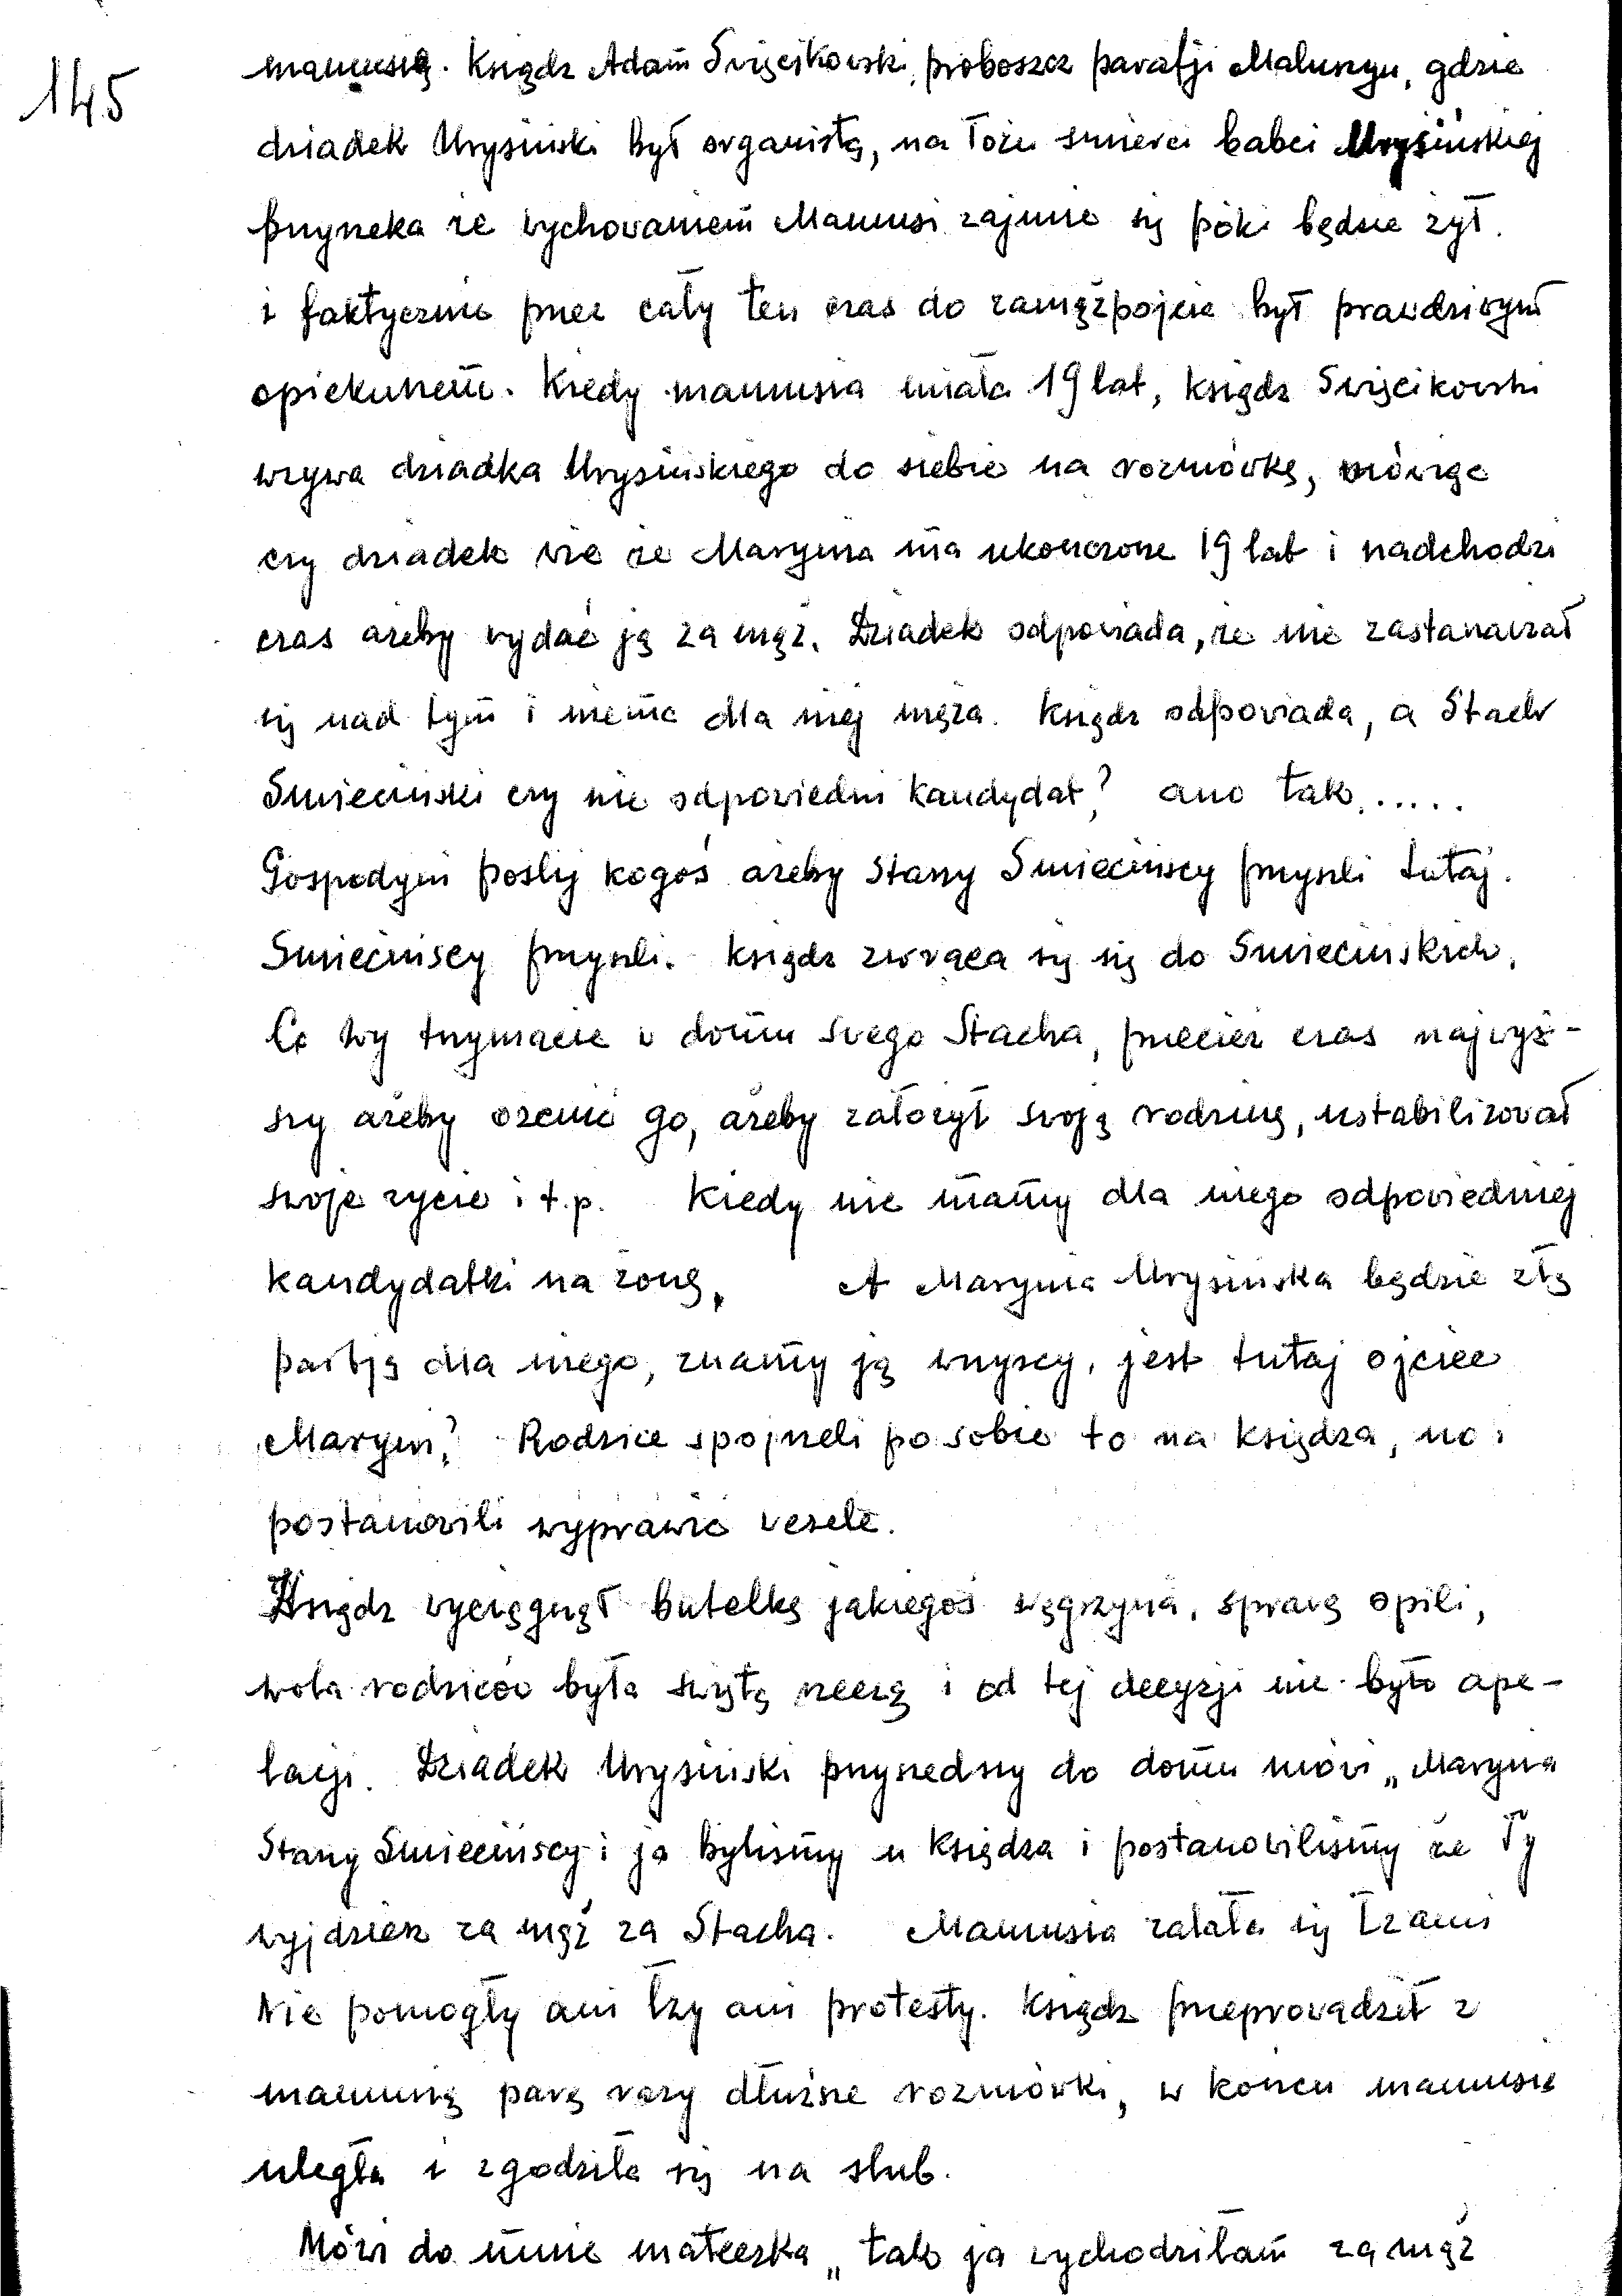 145
mamusią. Ksiądz Adam Święcikowski, proboszcz parafji Maluszyn, gdzie
dziadek Urysiński był organistą, na łożu smierci babci Urysińskiej
przyrzeka że wychowaniem Mamusi zajmie się póki będzie żył.
i faktycznie przez cały ten czas do zamążpojcia był prawdziwym
opiekunem. Kiedy mamusia miała 19 lat, ksiądz Swięcikowski
wzywa dziadka Urysińskiego do siebie na rozmówkę, mówiąc
czy dziadek wie że Marynia ma ukończone 19 lat i nadchodzi
czas ażeby wydać ją za mąż. Dziadek odpowiada, że nie zastanawiał
się nad tym i niema dla niej męża. Ksiądz odpowiada, a Stach
Smieciński czy nie odpowiedni kandydat? ano tak.....
Gospodyni poslij kogoś ażeby Starzy Smiecińscy przyszli tutaj.
Smiecińscy przyszli. Ksiądz zwraca się się do Smiecińskich,
Co wy trzymacie w domu swego Stacha, przecież czas najwyż-
szy ażeby ożenić go, ażeby założył swoją rodzinę, ustabilizował
swoje życie i t.p. Kiedy nie mamy dla niego odpowiedniej
kandydatki na żonę. A Marynia Urysińska będzie złą
partją dla niego, znamy ją wszyscy, jest tutaj ojciec
Maryni? Rodzice spojrzeli po sobie to na księdza, no i
postanowili wyprawić wesele.
Ksiądz wyciągnął butelkę jakiegoś węgrzyna, sprawę opili,
wola rodziców była świętą rzeczą i od tej decyzji nie było ape-
lacji. Dziadek Urysiński przyszedszy do domu mówi „Marynia
Starzy Smiecińscy i ja bylismy u Księdza i postanowilismy że Ty
wyjdziesz za mąż za Stacha. Mamusia zalała się łzami
Nie pomogły ani łzy ani protesty. Ksiądz przeprowadził z
mamusią parę razy dłuższe rozmówki, w końcu mamusia
uległa i zgodziła się na slub.
Mówi do mnie mateczka „tak ja wychodziłam za mąż